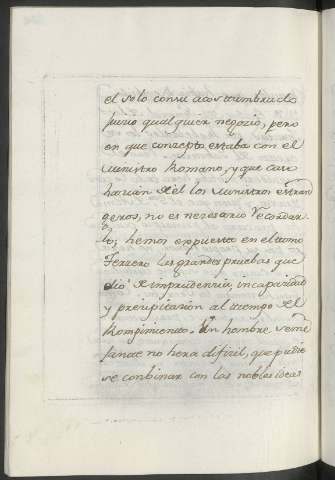 el solo con su acostumbrado
juicio qualquier negozio, pero
en que conzepto estaba con el
Ministro Romano, y que caso
harian de el los Ministros estran
geros, no es nezesario recordar
lo; hemos expuesto en el tomo
Terzero las grandes pruebas que
dió de imprudenzia, incapazidad
y prezipitazion al tiempo del
Rompimiento. Un hombre seme
jante no hera difizil, que pudie
se conbinar con las nobles ideas